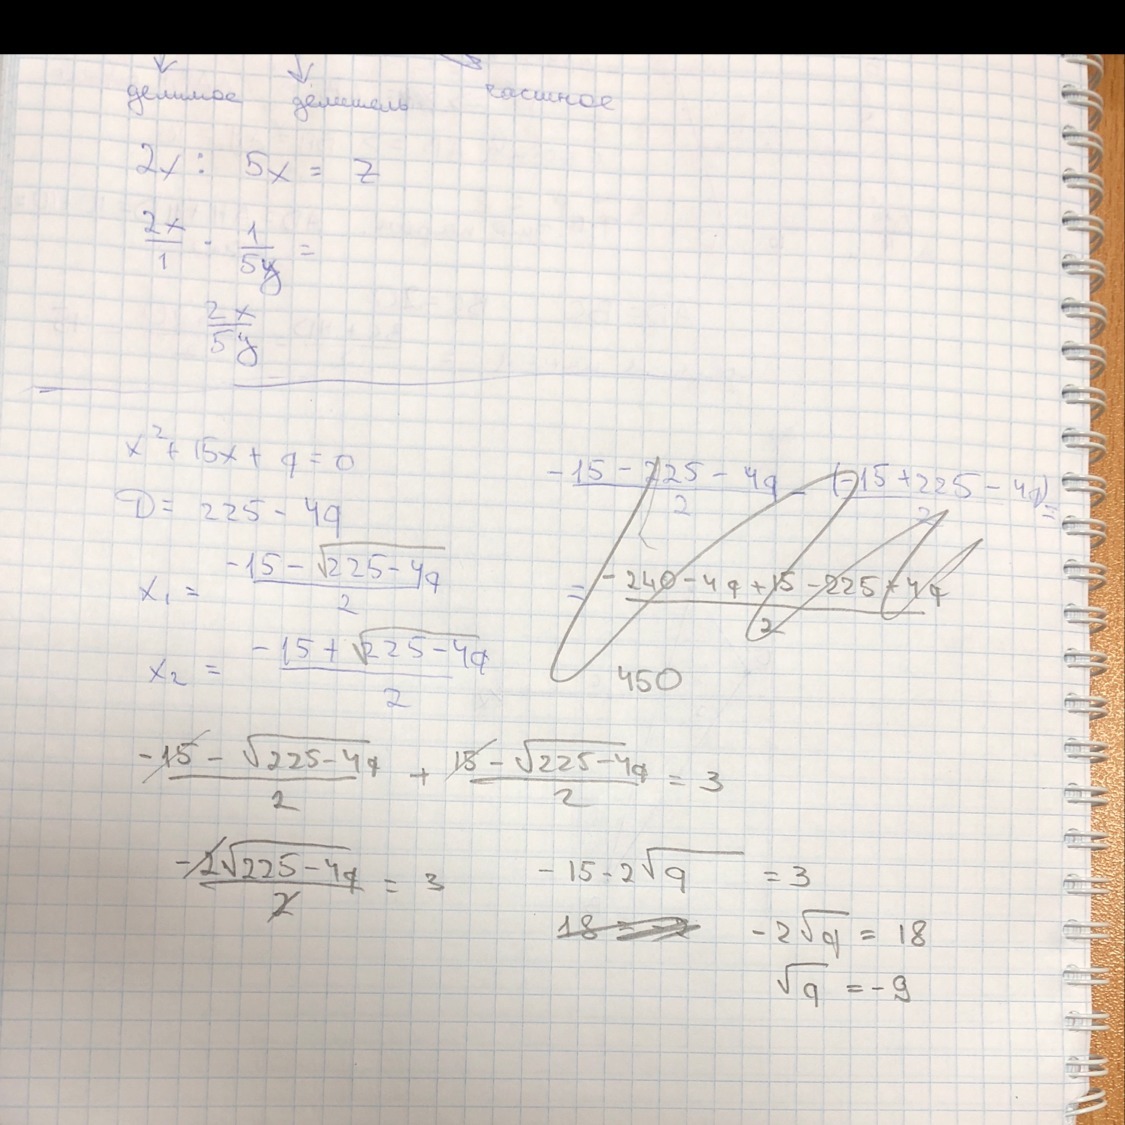 делимое делитель частное
2x : 5x = z
2x/1 · 1/5y =
2x/5y
x² + 15x + q = 0
D = 225 - 4q
x₁ = (-15 - √(225-4q))/2
x₂ = (-15 + √(225-4q))/2
(-15 - 225 - 4q)/2 - (-15 + 225 - 4q)/2 =
= (-240 - 4q + 15 - 225 + 4q)/2
450
(-15 - √(225-4q))/2 + (15 - √(225-4q))/2 = 3
(-2√(225-4q))/2 = 3
-15 - 2√q = 3
-2√q = 18
√q = -9